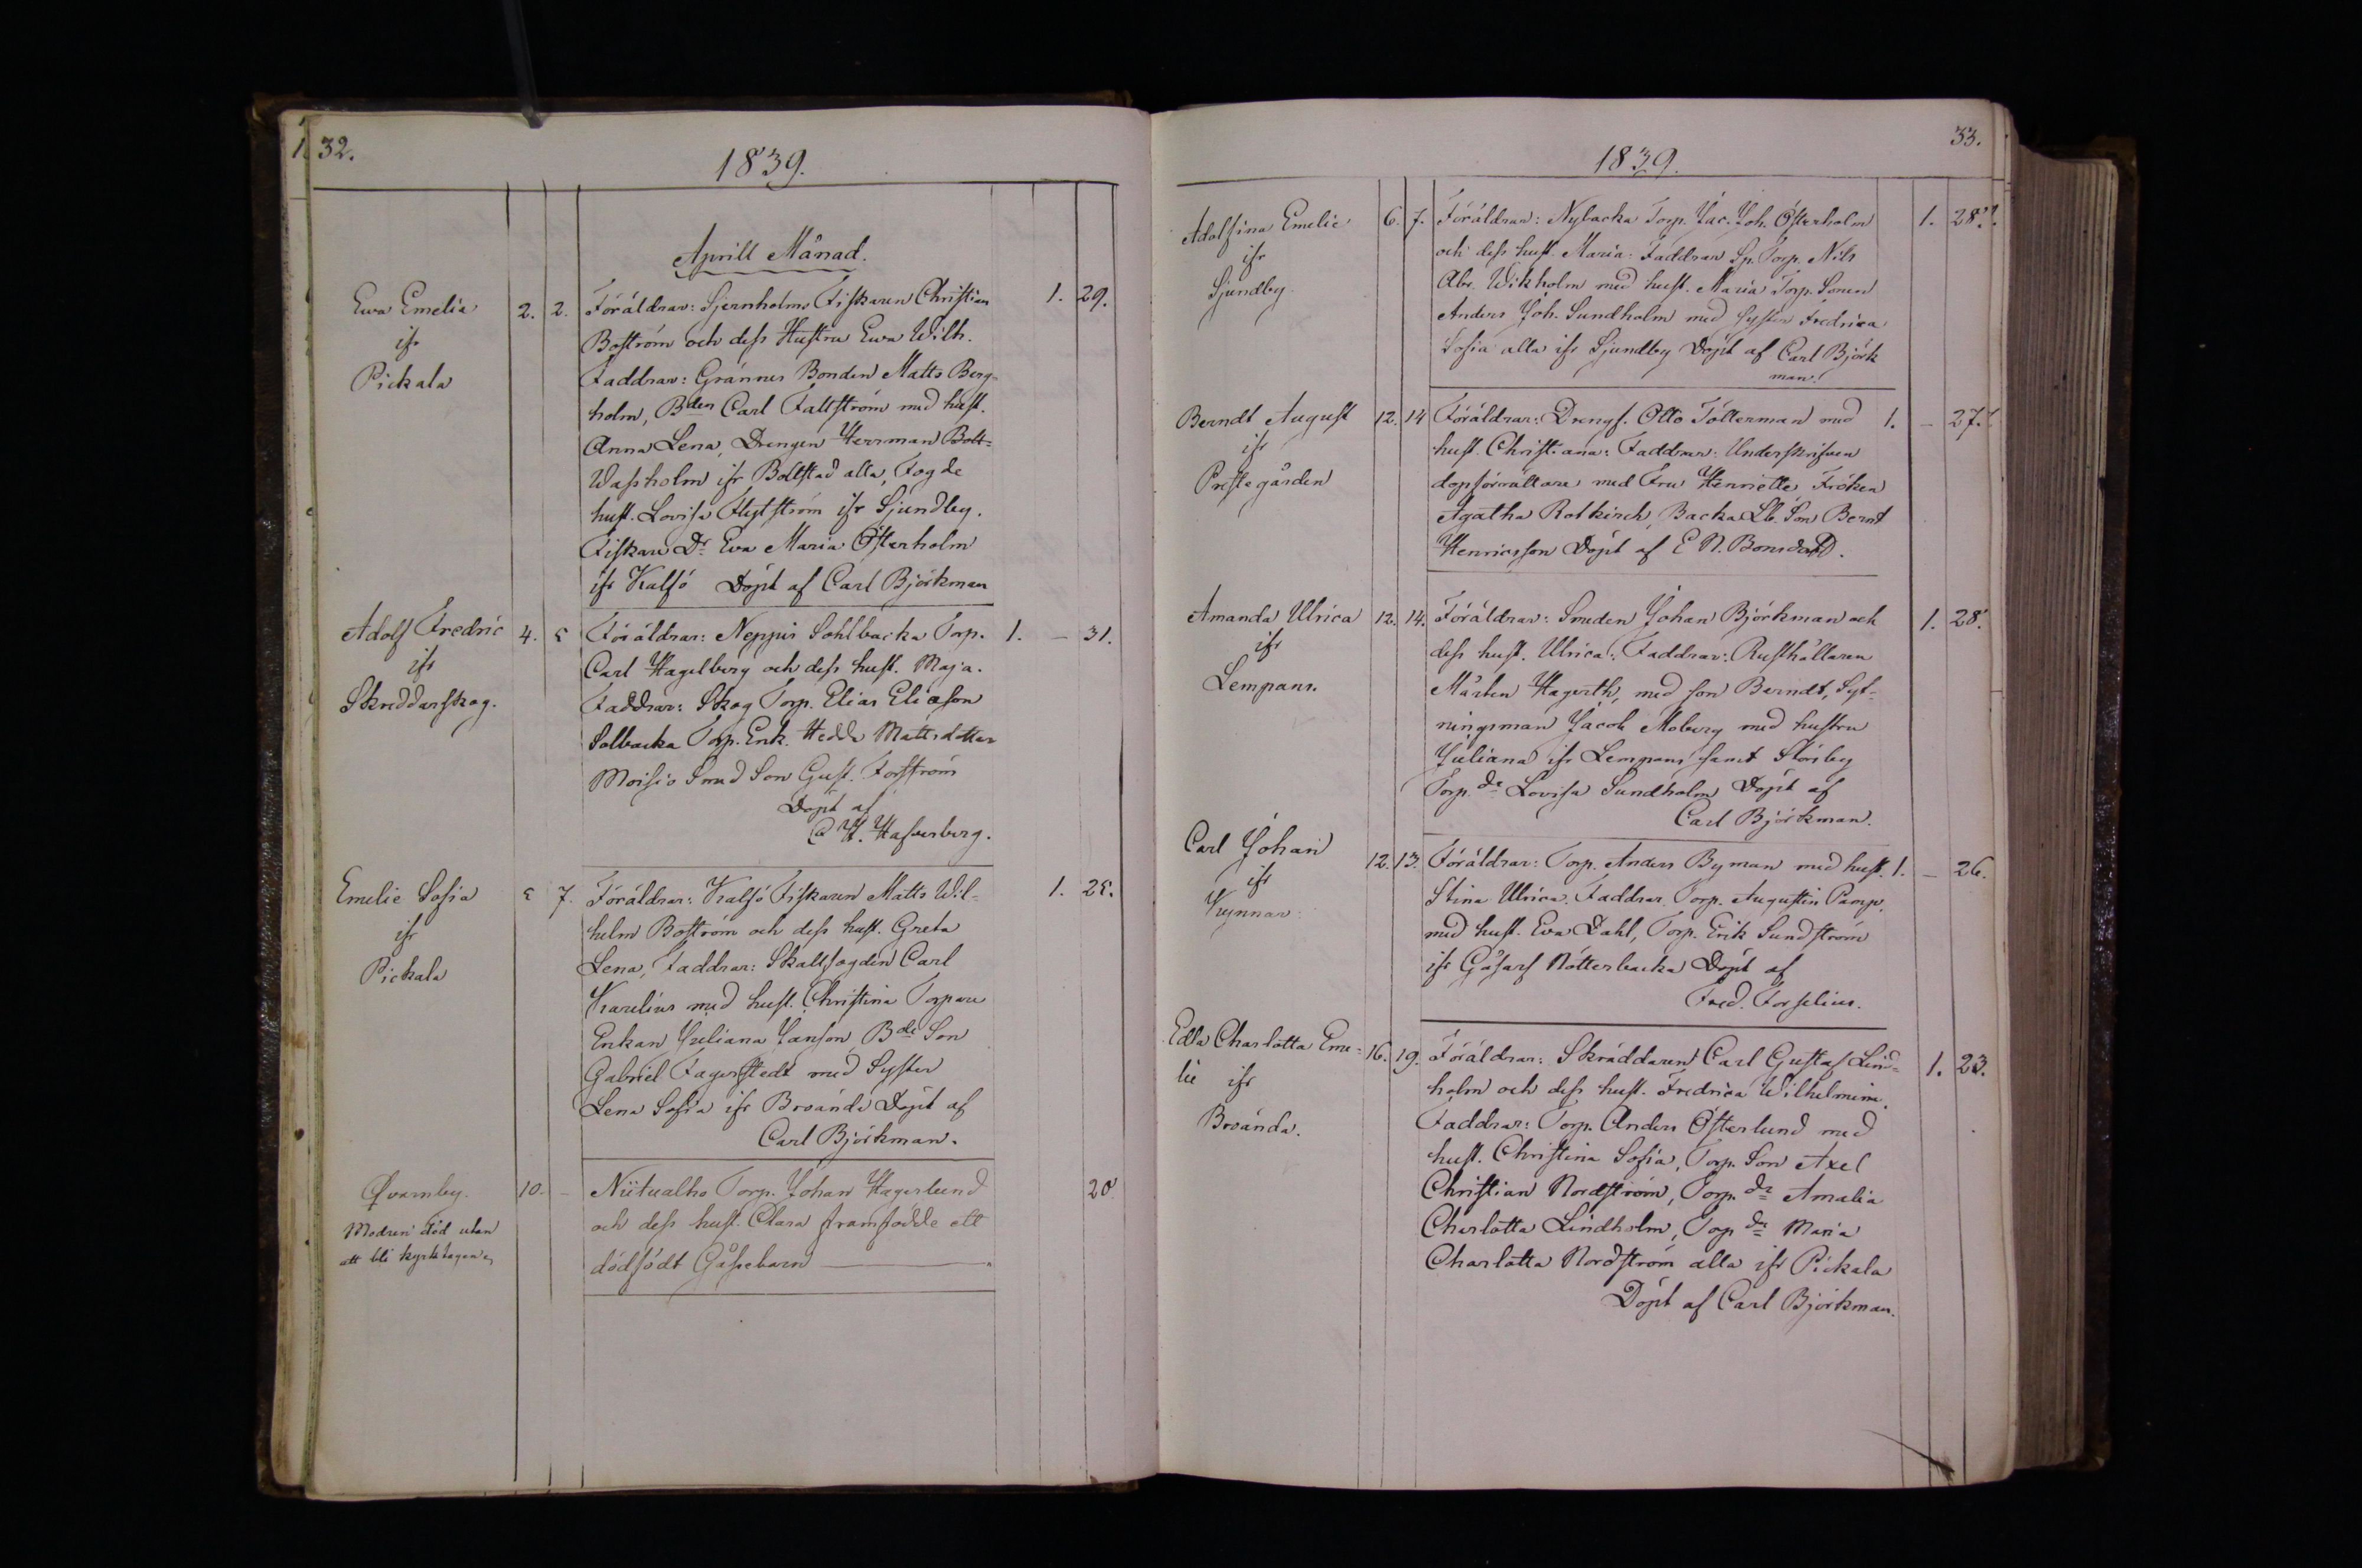 32.
1839.
Aprill Månad.
Ewa Emelia 2. 2. Föräldrar: Sjernholms Fiskaren Christian 1. 29.
ifr Boström och dess Hustru Ewa Wilh.
Pickala Faddrar: Grännes Bonden Matts Berg=
holm, Bden Carl Fallström med hust.
Anna Lena, Drengen Herrman Bolt=
Wassholm ifr Boltstad alla, Fogde
hust. Lovisa Flytström ifr Sjundby.
Fiskare Dr Eva Maria Österholm
ifr Kalfö Döpt af Carl Björkman
Adolf Fredric 4. 5 Föräldrar: Neppis Sohlbacka Torp. 1. – 31.
ifr Carl Hagelberg och dess hust. Maja.
Skreddarskog. Faddrar: Skog Torp. Elias Eliason
Solbacka Torp. Enk. Hedda Mattsdotter
Moisio Smed Son Gust. Forsström
Döpt af
C H. Hafverberg.
Emelie Sofia 5 7. Föräldrar: Kalfö Fiskaren Matts Wil= 1. 25.
ifr helm Boström och dess hust. Greta
Pickala Lena, Faddrar: Skallfogden Carl
Karelius med hust. Christina Torpare
Enkan Juliana Janson, Bde Son
Gabriel Fagerstedt med Syster
Lena Sofia ifr Broända Döpt af
Carl Björkman.
Qvarnby. 10. – Niitualho Torp. Johan Hagerlund 20
Modren död utan och dess hust. Clara framfödde ett
att bli kyrktagen dödfödt Gåssebarn
33.
1839.
Adolfina Emelie 6. 7. Föräldrar: Nybacka Torp. Jac. Joh. Österholm 1. 28.
ifr och dess hust. Maria: Faddrar Sp. Torp. Nils
Sjundby Abr. Wikholm med hust. Maria Torp. Sonen
Anders Joh. Sundholm med Syster Fredrica
Sofia alla ifr Sjundby Döpt af Carl Björk
man.
Berndt August 12. 14 Föräldrar: Drengf. Otto Tölterman med 1. – 27.
ifr hust. Christiana: Faddrar: Underskrifven
Prestegården dopförrättare med Fru Henriette Fröken
Agatha Rotkirch, Backa Lb. Son Bernt
Henricsson Döpt af E N. Bonsdorff.
Amanda Ulrica 12. 14. Föräldrar: Smeden Johan Björkman och 1. 28.
ifr dess hust. Ulrica: Faddrar: Rusthållaren
Lempans. Mårten Hagerth, med son Berndt, Syt=
ningsman Jacob Moberg med hustru
Juliana ifr Lempans samt Störsby
Torp. dr Lovisa Sundholm Döpt af
Carl Björkman.
Carl Johan 12. 13. Föräldrar: Torp. Anders Byman med hust. 1. – 26.
ifr Stina Ulrica. Faddrar. Torp. Augustin Pamp.
Kynnar. med hust. Eva Dahl, Torp. Erik Sundström
ifr Gåsarf Nötterbacka Döpt af
Fred. Forselius.
Edla Charlotta Eme= 16. 19. Föräldrar: Skräddaren Carl Gustaf Lind= 1. 23.
lie ifr holm och dess hust. Fredrica Wilhelmina.
Broända. Faddrar: Torp. Anders Österlund med
hust. Christina Sofia, Torp. Son Axel
Christian Nordström, Torp. dr Amalia
Charlotta Lindholm, Torp dr Maria
Charlotta Nordström alla ifr Pickala
Döpt af Carl Björkman.